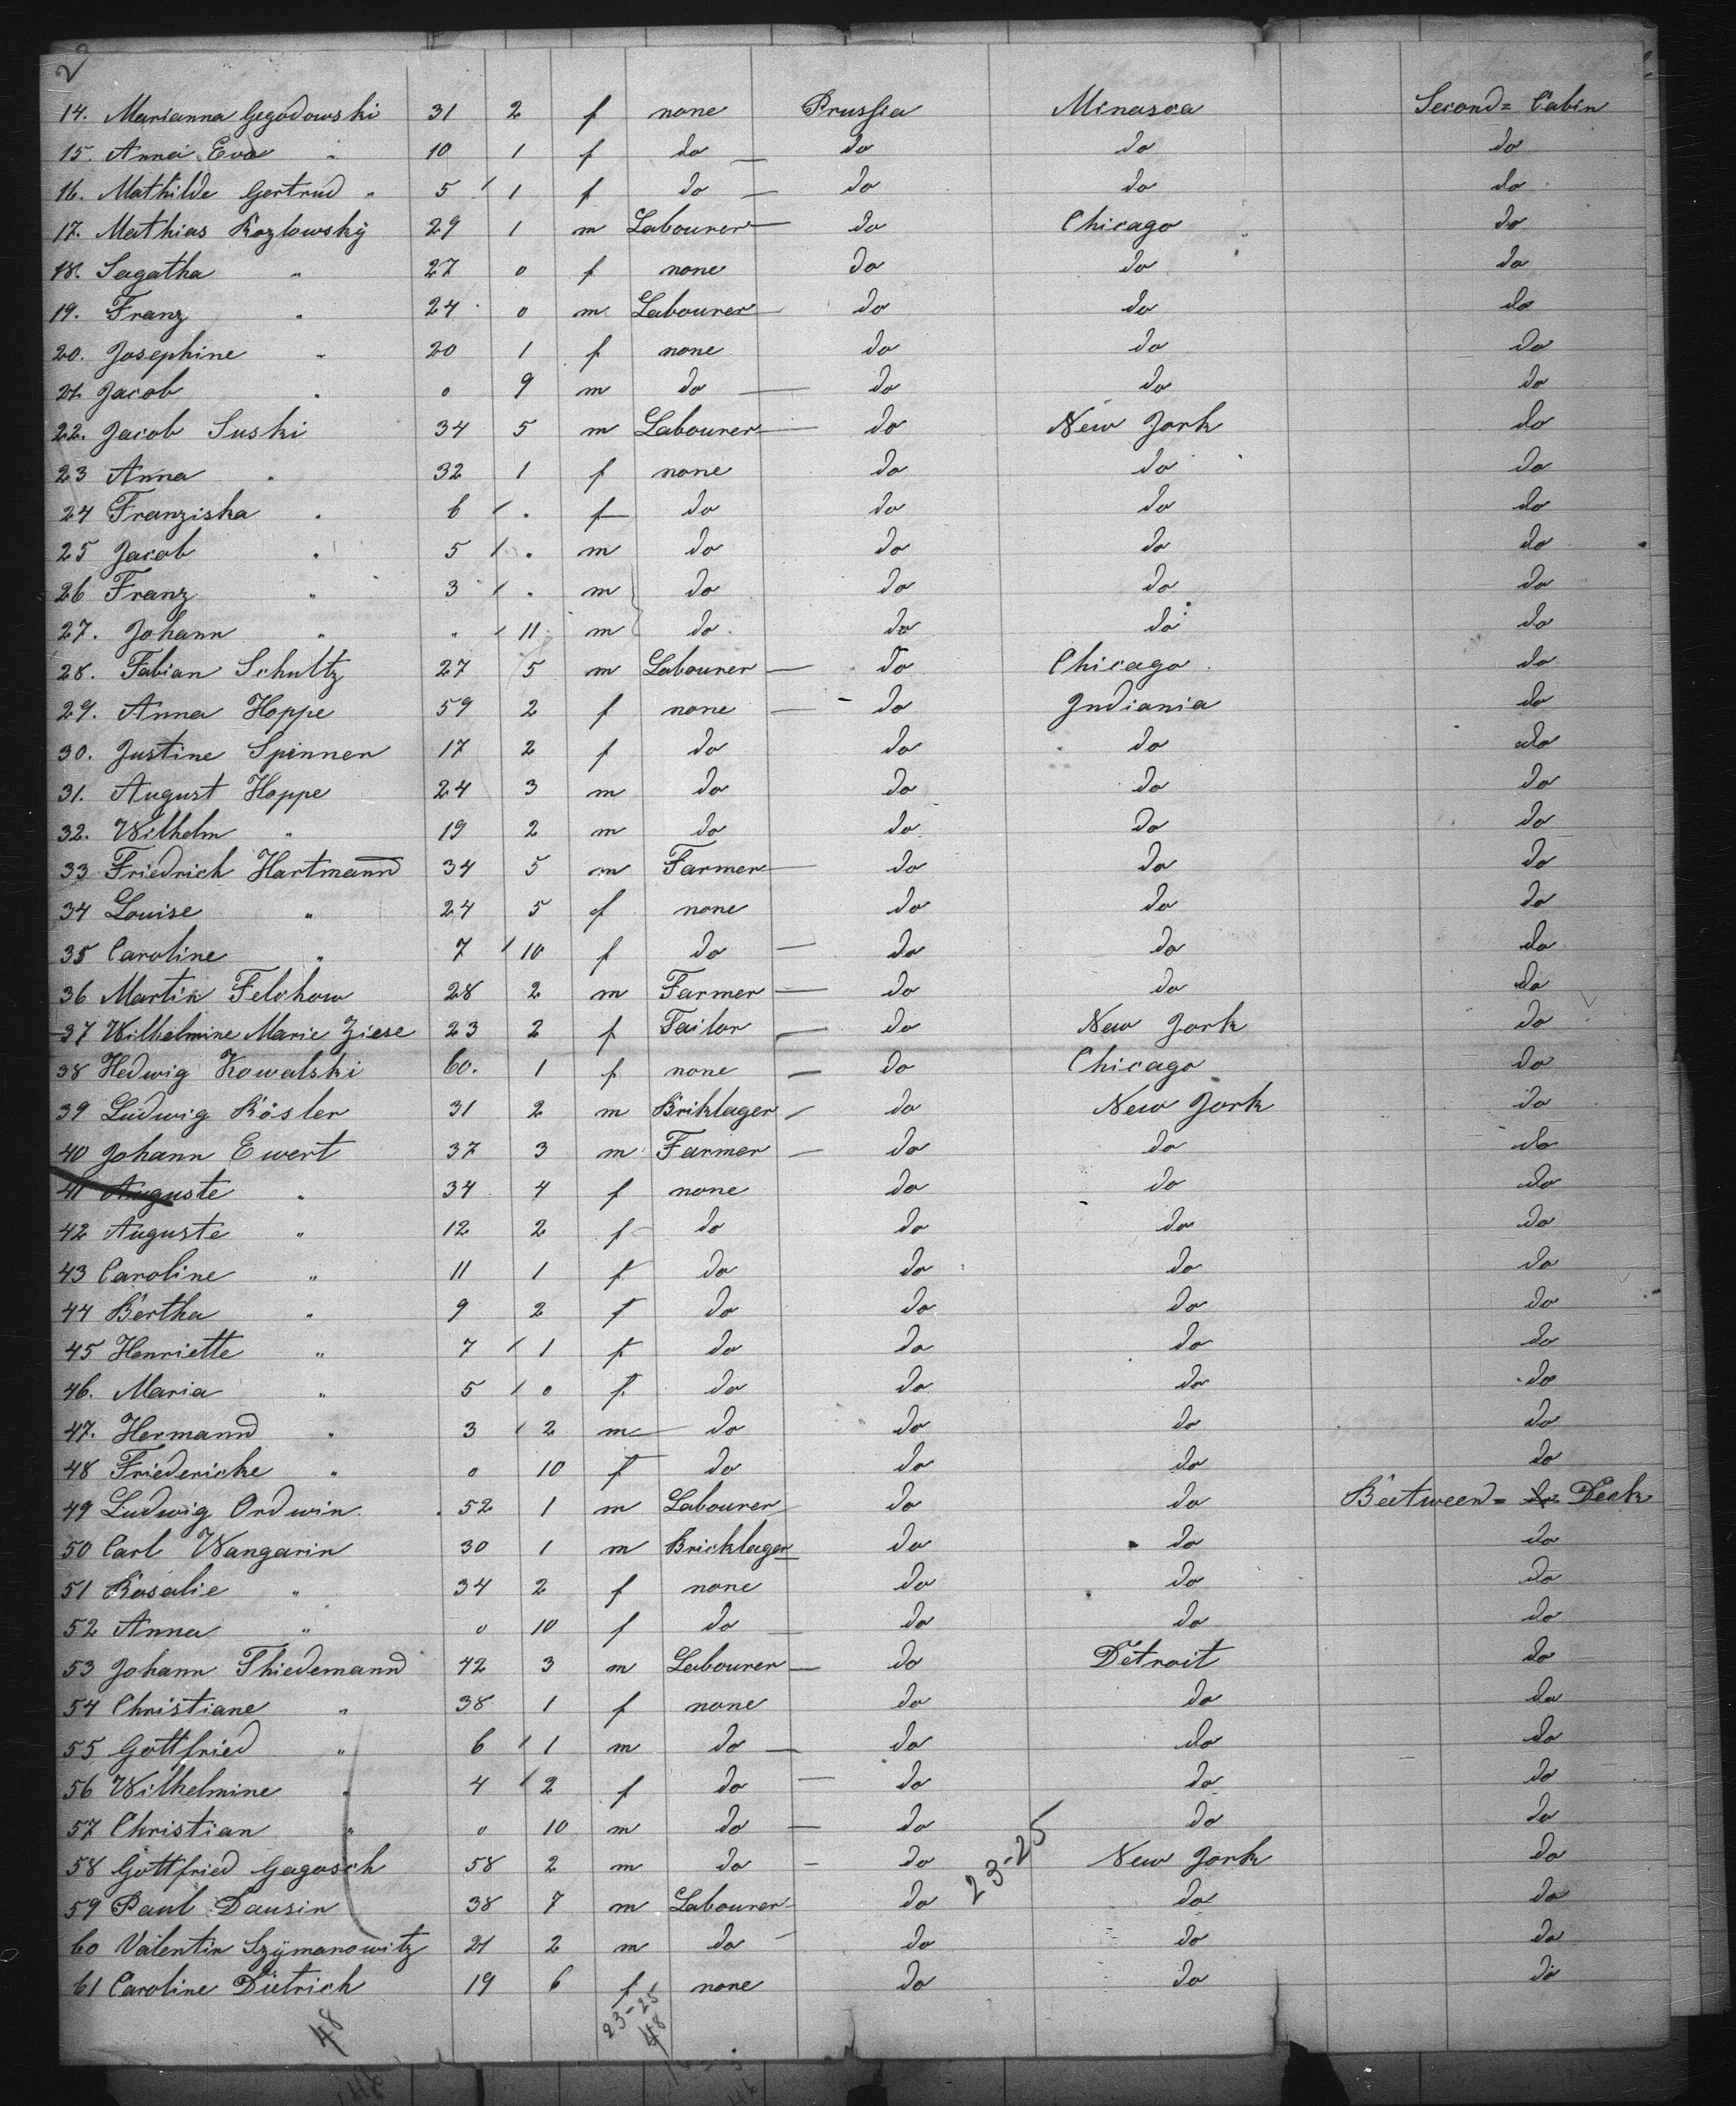 2
14. Marianna Gegodowski 31 2 f none Prussia Minasoa Second= Cabin
15. Anna Eva " 10 1 f do do do do
16. Mathilde Gertrud " 5 1 f do do do do
17. Mathias Kozlowsky 29 1 m Labourer do Chicago do
18. Sagatha " 27 0 f none do do do
19. Franz " 24 0 m Labourer do do do
20. Josephine " 20 1 f none do do do
21. Jacob " 0 9 m do do do do
22. Jacob Suski 34 5 m Labourer do New York do
23 Anna " 32 1 f none do do do
24 Franziska " 6 " f do do do do
25 Jacob " 5 " m do do do do
26 Franz " 3 " m do do do do
27. Johann " " 11 m do do do do
28. Fabian Schultz 27 5 m Labourer do Chicago do
29. Anna Hoppe 59 2 f none do Indiania do
30. Justine Spinner 17 2 f do do do do
31. August Hoppe 24 3 m do do do do
32. Wilhelm " 19 2 m do do do do
33 Friedrich Hartmann 34 5 m Farmer do do do
34 Louise " 24 5 f none do do do
35 Caroline " 7 10 f do do do do
36 Martin Felchow 28 2 m Farmer do do do
37 Wilhelmine Marie Ziese 23 2 f Tailor do New York do
38 Hedwig Kowalski 60. 1 f none do Chicago do
39 Ludwig Rösler 31 2 m Briklager do New York do
40 Johann Ewert 37 3 m Farmer do do do
41 Auguste " 34 4 f none do do do
42 Auguste " 12 2 f do do do do
43 Caroline " 11 1 f do do do do
44 Bertha " 9 2 f do do do do
45 Henriette " 7 1 f do do do do
46. Maria " 5 0 f do do do do
47. Hermann " 3 2 m do do do do
48 Friedericke " 0 10 f do do do do
49 Ludwig Ordwin 52 1 m Labourer do do Beetween= do Deck
50 Carl Wangarin 30 1 m Bricklager do do do
51 Rosalie " 34 2 f none do do do
52 Anna " 0 10 f do do do do
53 Johann Thiedemann 42 3 m Labourer do Detroit do
54 Christiane " 38 1 f none do do do
55 Gottfried " 6 1 m do do do do
56 Wilhelmine " 4 2 f do do do do
57 Christian " 0 10 m do do do do
58 Gottfried Gagosch 58 2 m do do 23-25 New York do
59 Paul Dausin 38 7 m Labourer do do do
60 Valentin Szymanowitz 21 2 m do do do do
61 Caroline Dietrich 19 6 f none do do do
48 23-25 48